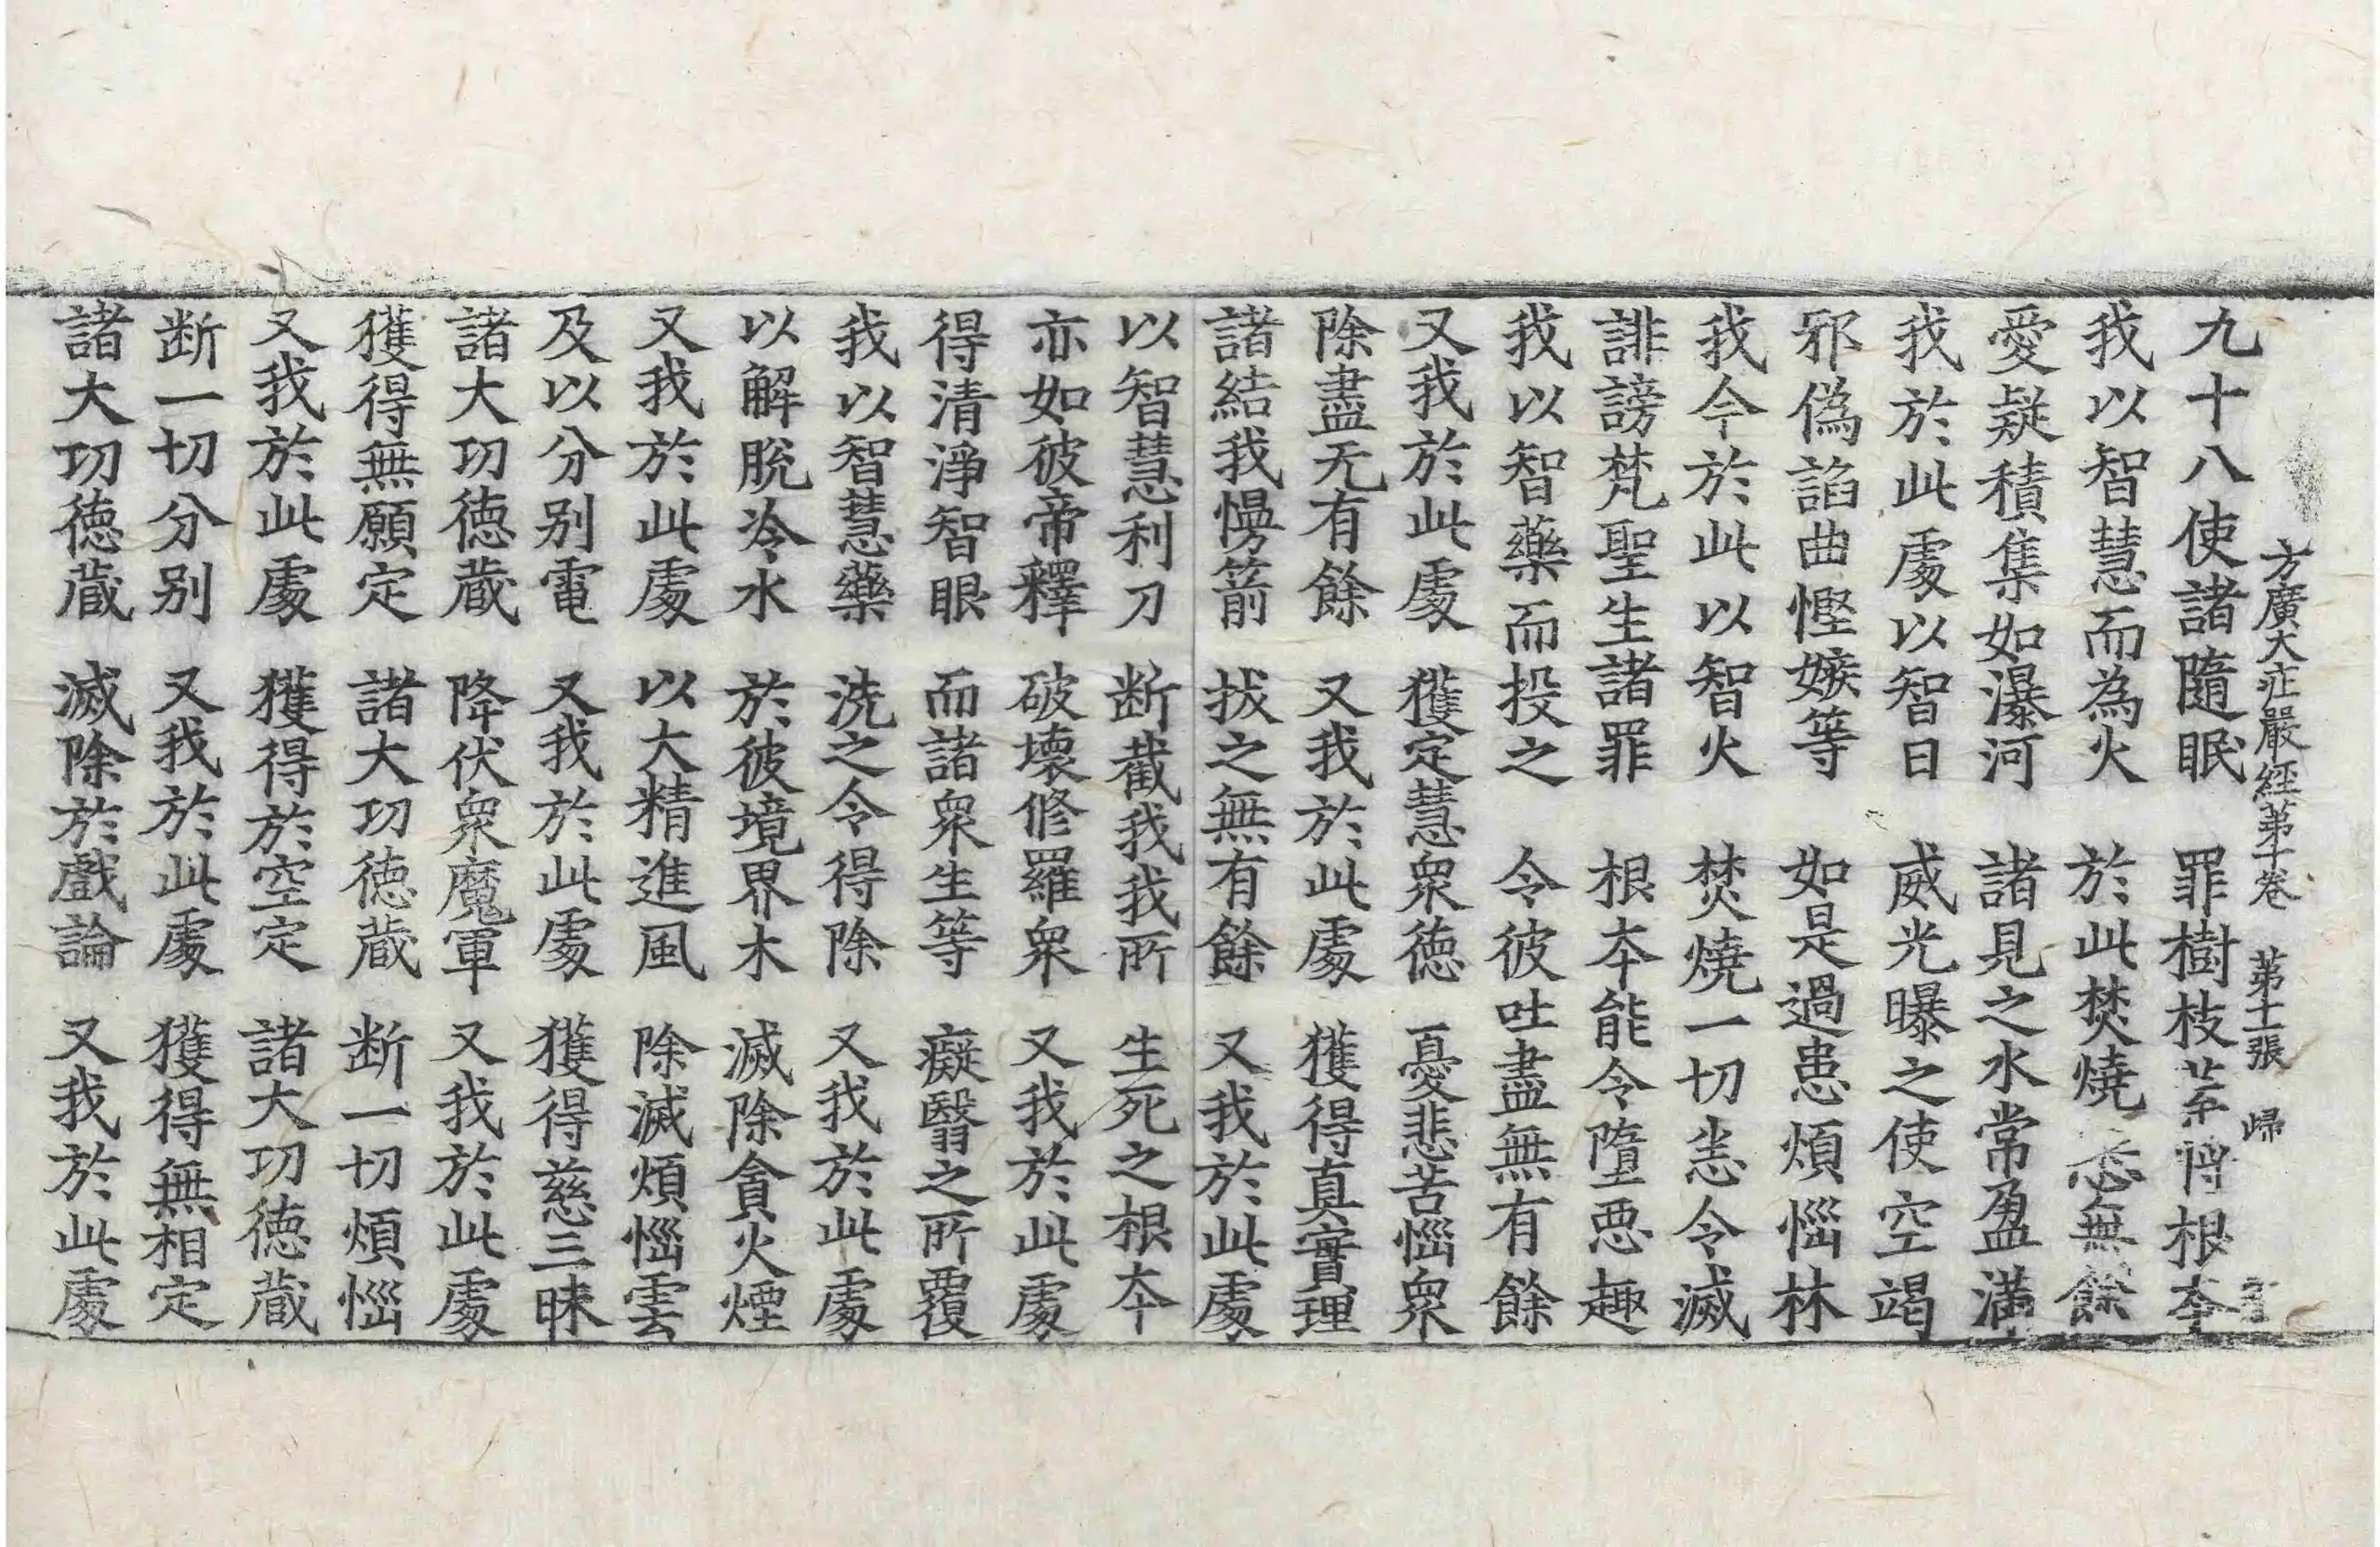 方廣大莊嚴經第十卷 第十一張 歸
九十八使諸隨眠 罪樹枝 根夲
我以智慧而為火 於此焚燒悉無餘
愛疑積集如瀑河 諸見之水常盈滿
我於此處以智日 威光曝之使空竭
邪偽諂曲慳嫉等 如是過患煩惱林
我今於此以智火 焚燒一切恙令滅
誹謗梵聖生諸罪 根夲能令墮惡趣
我以智藥而投之 令彼吐盡無有餘
又我於此處 獲定慧衆徳 憂悲苦惱衆
除盡无有餘 又我於此處 獲得真實理
諸結我慢箭 拔之無有餘 又我於此處
以智慧利刀 断截我我所 生死之根夲
亦如彼帝釋 破壞修羅衆 又我於此處
得清淨智眼 而諸衆生等 癡翳之所覆
我以智慧藥 洗之令得除 又我於此處
以解脫冷水 於彼境界木 滅除貪火煙
又我於此處 以大精進風 除滅煩惱雲
及以分别電 又我於此處 獲得慈三昧
諸大功徳蔵 降伏衆魔軍 又我於此處
獲得無願定 諸大功徳蔵 断一切煩惱
又我於此處 獲得於空定 諸大功徳蔵
断一切分别 又我於此處 獲得無相定
諸大功徳蔵 滅除於戲論 又我於此處